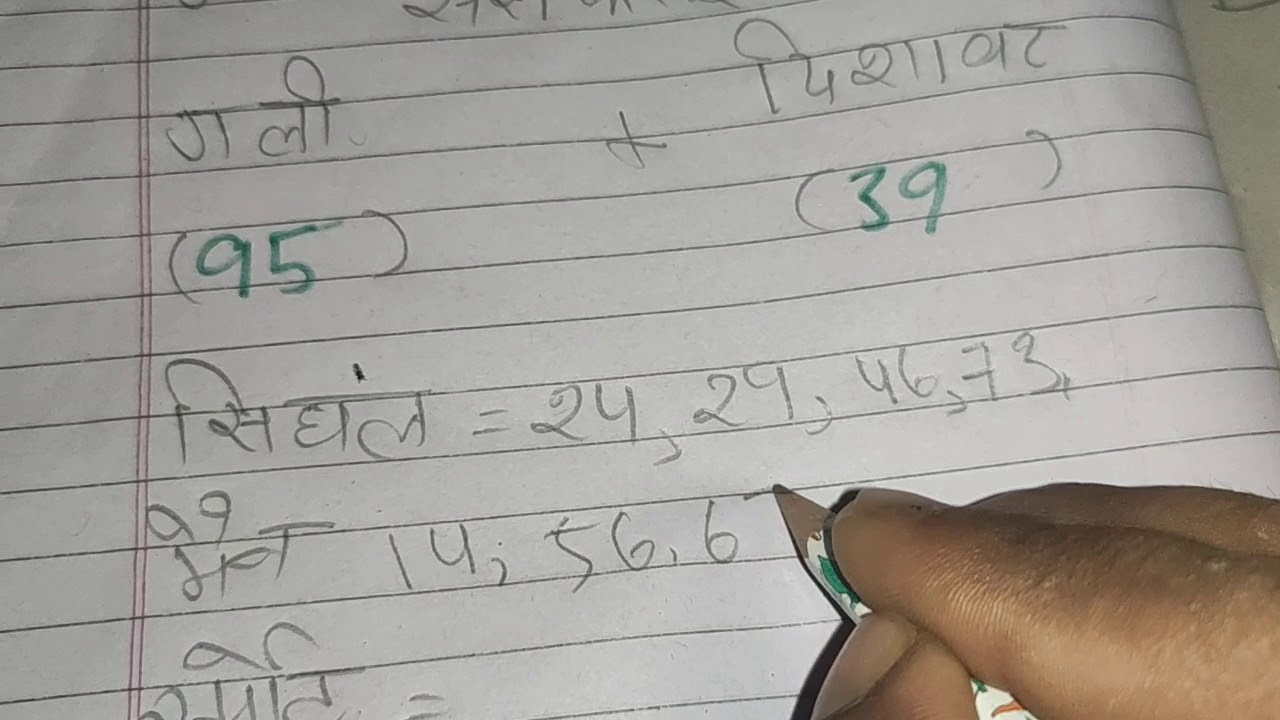 गली + दिशावर
(95) (39)
सिघंल = 24, 29, 46, 73,
मैन 14, 56, 6
=